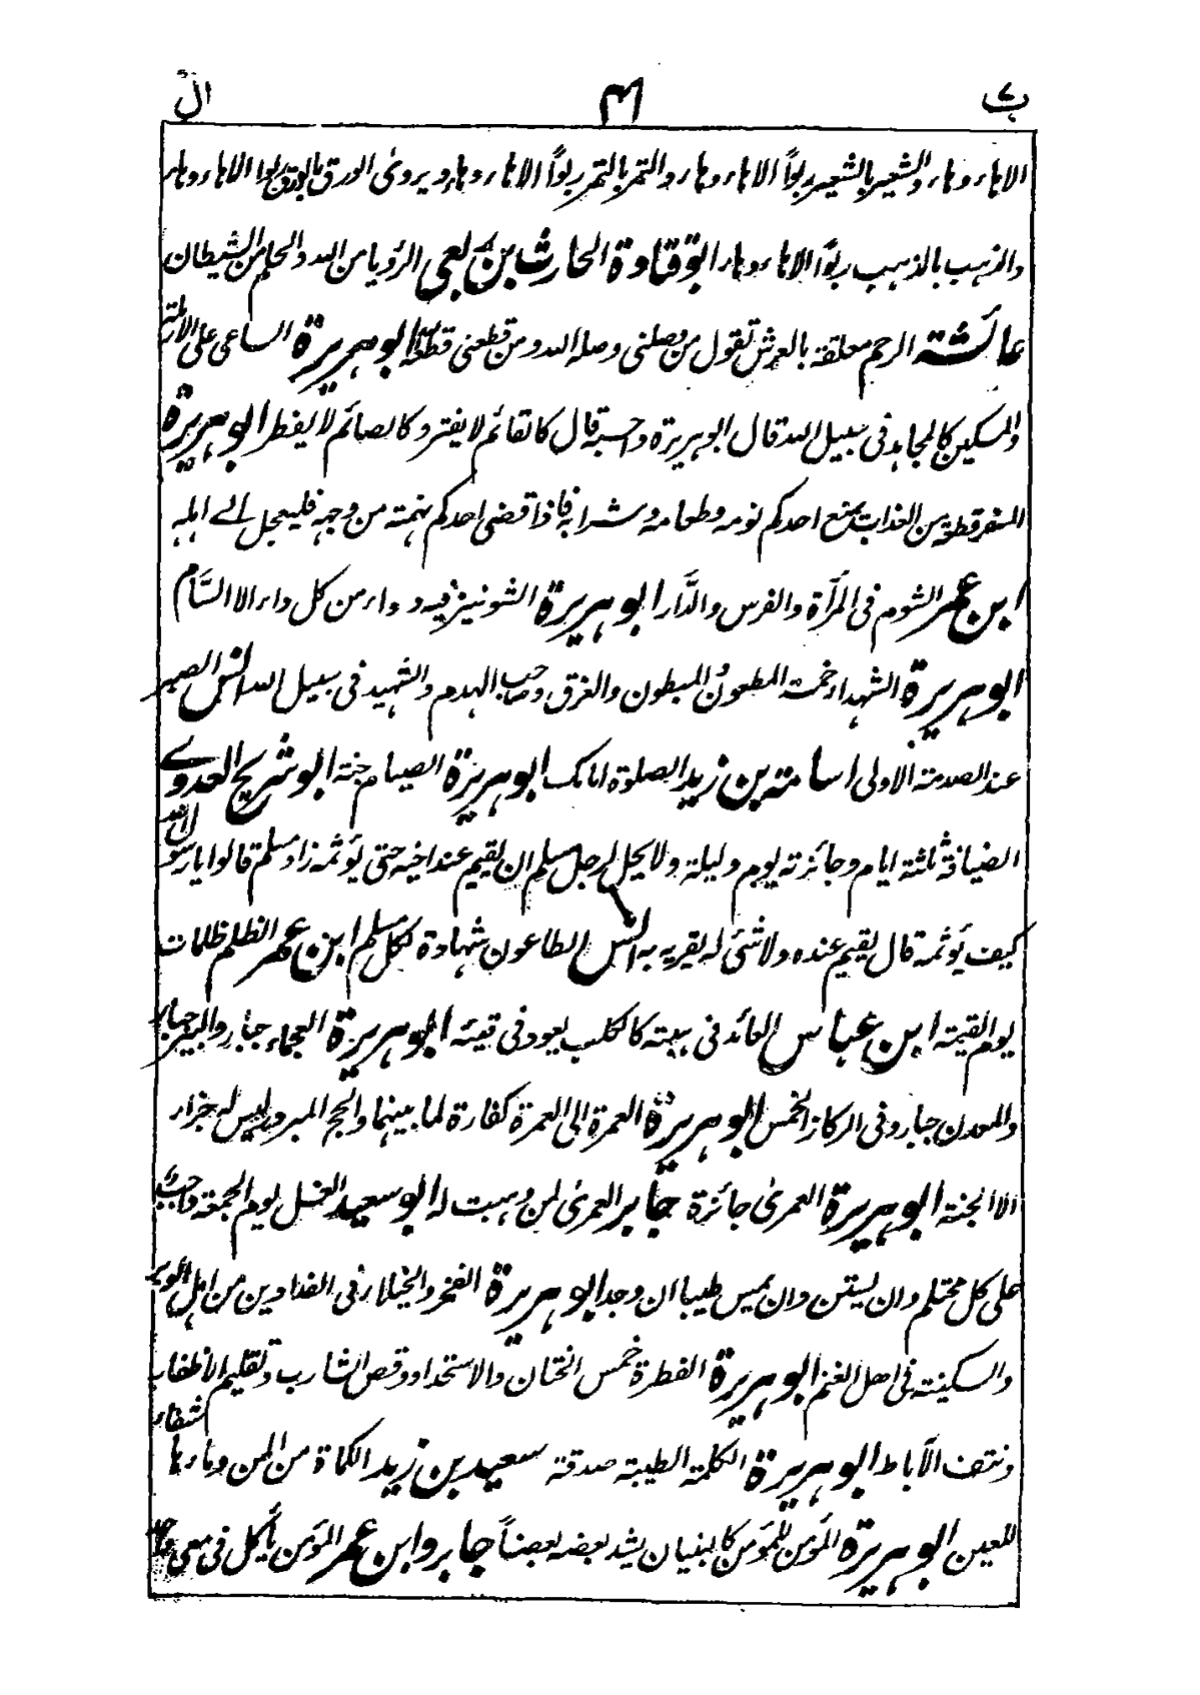 ب ٧ ٤١ ال
الا ہاء وہاء والشعیر بالشعیر ربواً الا ہاء وہاء والتمر بالتمر ربواً الا ہاء وہاء ویروی الورق بالورق ربوا الا ہاء وہاء
والذہب بالذہب ربواً الا ہاء وہاء ابو قتادة الحارث بن ربعی الرؤیا من اللہ والحلم من الشیطان
عائشتہ الرحم معلقۃ بالعرش تقول من وصلنی وصلہ اللہ ومن قطعنی قطعہ اللہ ابو ہریرة الساعی علی الارملتہ
والمسکین کالمجاہد فی سبیل اللہ قال ابو ہریرة واحسبہ قال کالقائم لا یفتر وکالصائم لا یفطر ابو ہریرة
السفر قطعۃ من العذاب یمنع احدکم نومہ وطعامہ وشرابہ فاذا قضی احدکم نہمتہ من وجہہ فلیعجل الے اہلہ
ابن عمر الشوم فی المرأة والفرس والدَّار ابو ہریرة الشونیز فیہ دواء من کل داء الا السَّام
ابو ہریرة الشہداء خمستہ المطعون والمبطون والغرق وصاحب الہدم والشہید فی سبیل اللہ انس الصبر
عند الصدمتہ الاولی اسامتہ بن زید الصلوة امامک ابو ہریرة الصیام جنتہ ابو شریح العدوے
الضیافۃ ثلثتہ ایام وجائزتہ یوم ولیلۃ ولا یحل لرجل مسلم ان یقیم عند اخیہ حتی یؤثمہ زاد مسلم قالوا یا رسول اللہ
کیف یؤثمہ قال یقیم عندہ ولا شئی لہ یقریہ بہ انس الطاعون شہادة لکل مسلم ابن عمر الظلم ظلمات
یوم القیمتہ ابن عباس العائد فی ہبتہ کالکلب یعود فی قیئہ ابو ہریرة العجماء جبار والبیر جبار
والمعدن جبار وفی الرکاز الخمس ابو ہریرة العمرة الی العمرة کفارة لما بینہما والحج المبرور لیس لہ جزاء
الا الجنتہ ابو ہریرة العمری جائزة جابر العمری لمن وہبت لہ ابو سعید الغسل یوم الجمعۃ واجب
علی کل محتلم وان یستن وان یمس طیبا ان وجد ابو ہریرة الفخر والخیلاء فی الفدادین من اہل الوبر
والسکینتہ فی اهل الغنم ابو ہریرة الفطرة خمس الختان والاستحداد وقص الشارب وتقلیم الاظفار
ونتف الآباط ابو ہریرة الکلمۃ الطیبتہ صدقتہ سعید بن زید الکماة من المن وماءہا شفاء
للعین ابو ہریرة المؤمن للمؤمن کالبنیان یشد بعضہ بعضاً جابر وابن عمر المؤمن یأکل فی معی واحد